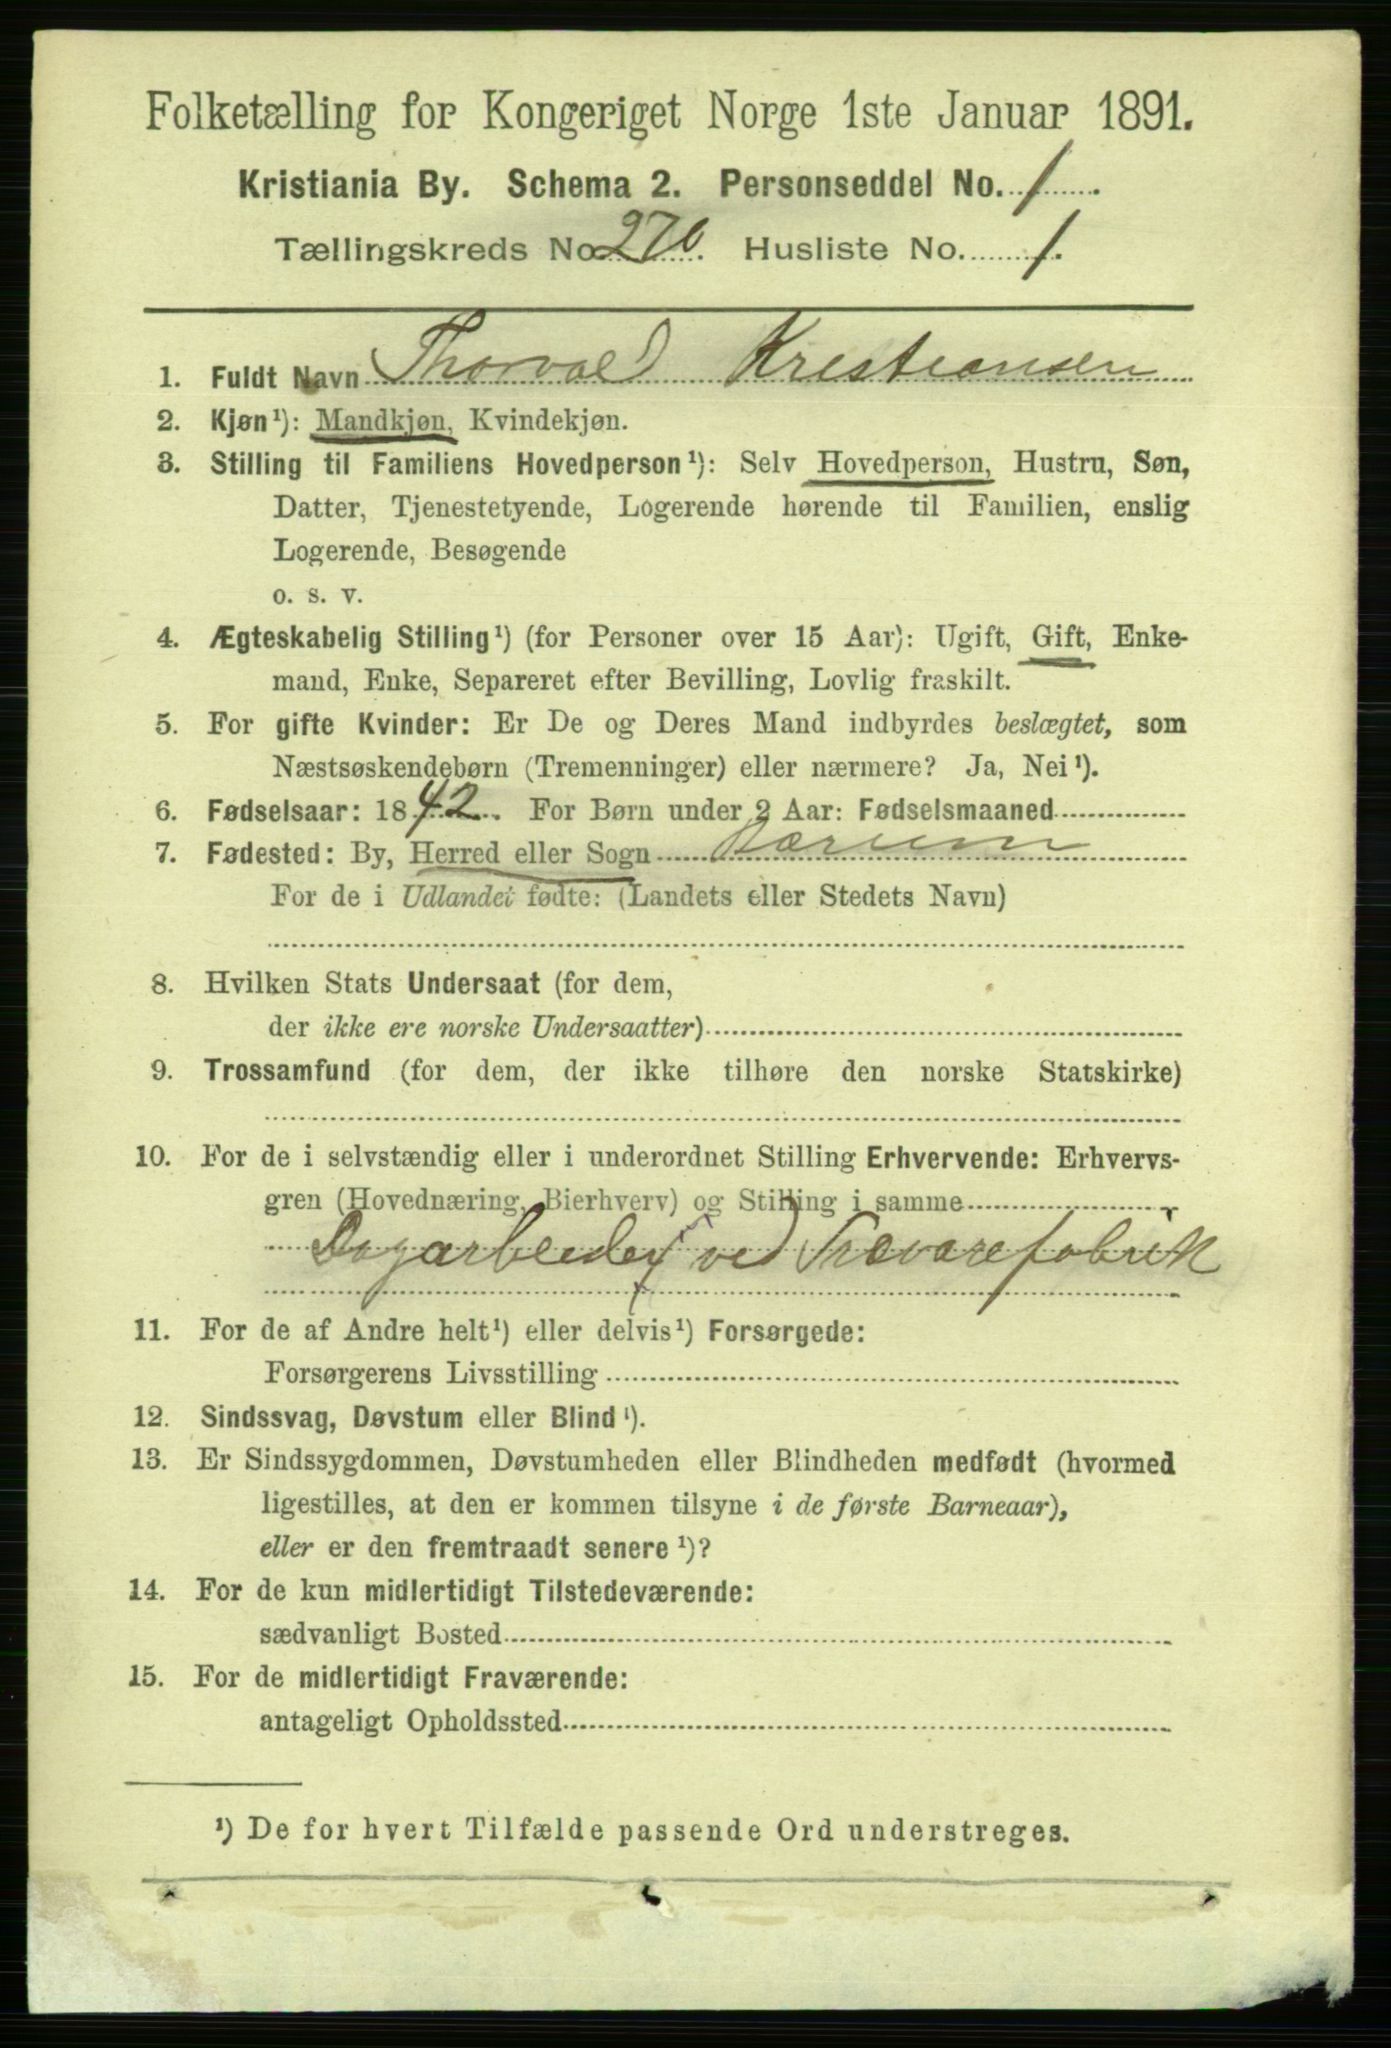 Folketælling for Kongeriget Norge 1ste Januar 1891.
Kristiania By. Schema 2. Personseddel No. 1.
Tællingskreds No 270. Husliste No. 1.
1. Fuldt Navn Thorvald Kristiansen
2. Kjøn¹): Mandkjøn, Kvindekjøn.
3. Stilling til Familiens Hovedperson¹): Selv Hovedperson, Hustru, Søn,
Datter, Tjenestetyende, Logerende hørende til Familien, enslig
Logerende, Besøgende
o. s. v.
4. Ægteskabelig Stilling¹) (for Personer over 15 Aar): Ugift, Gift, Enke-
mand, Enke, Separeret efter Bevilling, Lovlig fraskilt.
5. For gifte Kvinder: Er De og Deres Mand indbyrdes beslægtet, som
Næstsøskendebørn (Tremenninger) eller nærmere? Ja, Nei¹).
6. Fødselsaar: 1842. For Børn under 2 Aar: Fødselsmaaned
7. Fødested: By, Herred eller Sogn Bærum
For de i Udlandet fødte: (Landets eller Stedets Navn)
8. Hvilken Stats Undersaat (for dem,
der ikke ere norske Undersaatter)
9. Trossamfund (for dem, der ikke tilhøre den norske Statskirke)
10. For de i selvstændig eller i underordnet Stilling Erhvervende: Erhvervs-
gren (Hovednæring, Bierhverv) og Stilling i samme
Dagarbeider ved Trævarefabrik
11. For de af Andre helt¹) eller delvis¹) Forsørgede:
Forsørgerens Livsstilling
12. Sindssvag, Døvstum eller Blind¹).
13. Er Sindssygdommen, Døvstumheden eller Blindheden medfødt (hvormed
ligestilles, at den er kommen tilsyne i de første Barneaar),
eller er den fremtraadt senere¹)?
14. For de kun midlertidigt Tilstedeværende:
sædvanligt Bosted
15. For de midlertidigt Fraværende:
antageligt Opholdssted
¹) De for hvert Tilfælde passende Ord understreges.